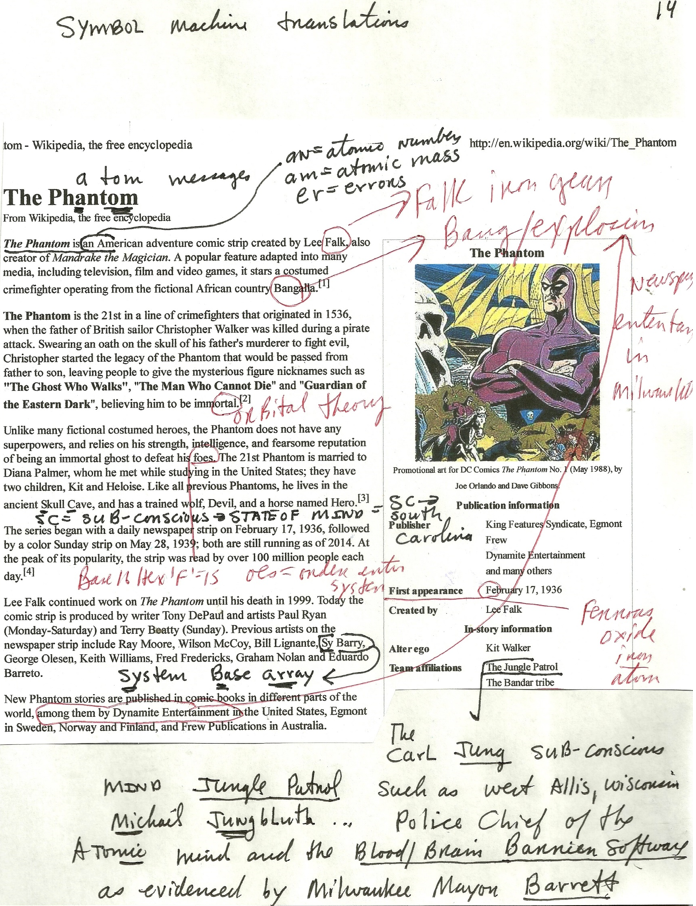 SYMBOL machine translations
14
tom - Wikipedia, the free encyclopedia
http://en.wikipedia.org/wiki/The_Phantom
an = atomic number
am = atomic mass
er = errors
a tom messages
The Phantom
From Wikipedia, the free encyclopedia
Falk iron gear
Bang/explosion
The Phantom is an American adventure comic strip created by Lee Falk, also
creator of Mandrake the Magician. A popular feature adapted into many
media, including television, film and video games, it stars a costumed
crimefighter operating from the fictional African country Bangalla.[1]
The Phantom is the 21st in a line of crimefighters that originated in 1536,
when the father of British sailor Christopher Walker was killed during a pirate
attack. Swearing an oath on the skull of his father's murderer to fight evil,
Christopher started the legacy of the Phantom that would be passed from
father to son, leaving people to give the mysterious figure nicknames such as
"The Ghost Who Walks", "The Man Who Cannot Die" and "Guardian
of the Eastern Dark", believing him to be immortal.[2]
orbital theory
Unlike many fictional costumed heroes, the Phantom does not have any
superpowers, and relies on his strength, intelligence, and fearsome reputation
of being an immortal ghost to defeat his foes. The 21st Phantom is married to
Diana Palmer, whom he met while studying in the United States; they have
two children, Kit and Heloise. Like all previous Phantoms, he lives in the
ancient Skull Cave, and has a trained wolf, Devil, and a horse named Hero.[3]
SC = SUB-conscious → STATE OF MIND =
SC →
South
Carolina
The series began with a daily newspaper strip on February 17, 1936, followed
by a color Sunday strip on May 28, 1939; both are still running as of 2014. At
the peak of its popularity, the strip was read by over 100 million people each
day.[4]
Base 16 Hex 'F' = 15
oes = order
system
Lee Falk continued work on The Phantom until his death in 1999. Today the
comic strip is produced by writer Tony DePaul and artists Paul Ryan
(Monday-Saturday) and Terry Beatty (Sunday). Previous artists on the
newspaper strip include Ray Moore, Wilson McCoy, Bill Lignante, Sy Barry,
George Olesen, Keith Williams, Fred Fredericks, Graham Nolan and Eduardo
Barreto.
System Base array
New Phantom stories are published in comic books in different parts of the
world, among them by Dynamite Entertainment in the United States, Egmont
in Sweden, Norway and Finland, and Frew Publications in Australia.
The Phantom
in
Promotional art for DC Comics The Phantom No. 1 (May 1988), by
Joe Orlando and Dave Gibbons.
Publication information
Publisher King Features Syndicate, Egmont
Frew
Dynamite Entertainment
and many others
First appearance February 17, 1936
Created by Lee Falk
In-story information
Alter ego Kit Walker
Team affiliations The Jungle Patrol
The Bandar tribe
Ferrous
oxide
iron
atom
The
Carl Jung SUB-conscious
MIND Jungle Patrol such as west Allis, wisconsin
Michail Jungbluth ... Police Chief of the
ATomic mind and the Blood/Brain Barrier Software
as evidenced by Milwaukee Mayor Barrett